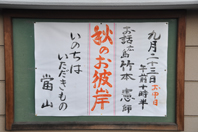 九月二十三日 お中日
午前十時半
お話 広島 竹本 憲 師
秋のお彼岸
いのちは
いただきもの
當山